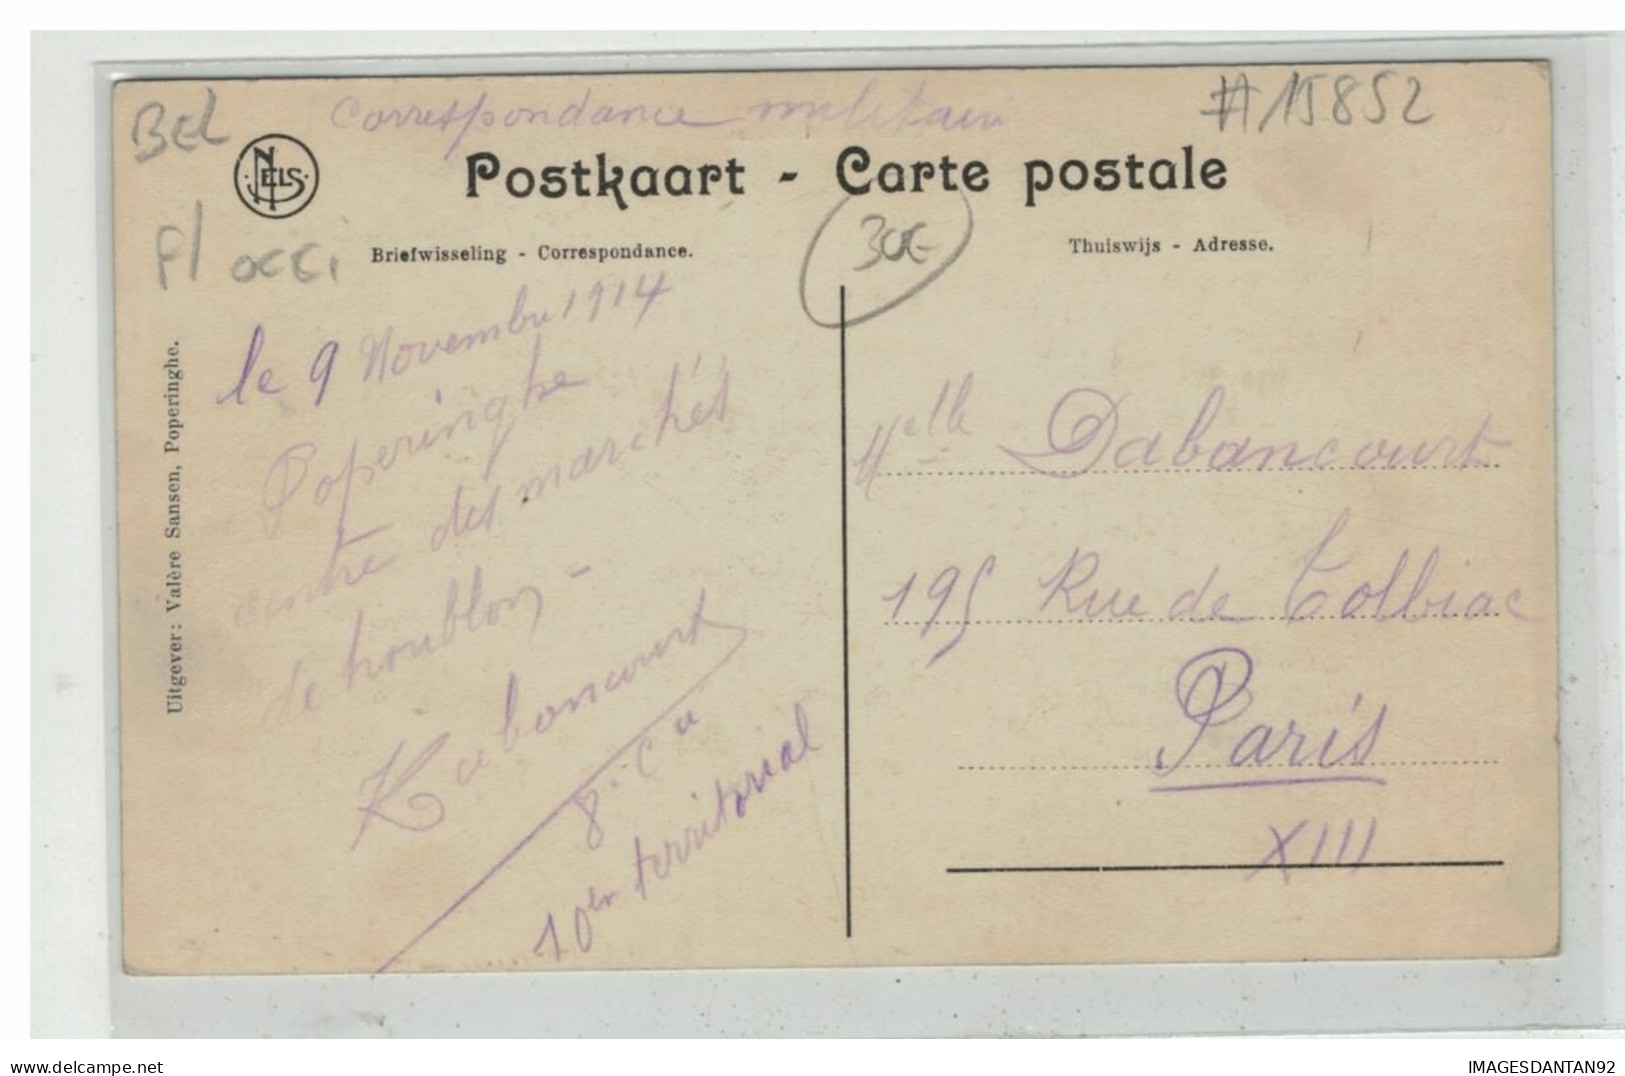 Correspondance militaire
#15852
BEL
NELS
Postkaart - Carte postale
Fl occi
30E
Briefwisseling - Correspondance.
Thuiswijs - Adresse.
Uitgever: Valère Sansen, Poperinghe.
le 9 Novembre 1914
Poperinghe
centre des marchés
de houblon -
8e Cie
10er territorial
Melle Dabancourt
195 Rue de Tolbiac
Paris
XIII
delcampe.net
IMAGESDANTAN92